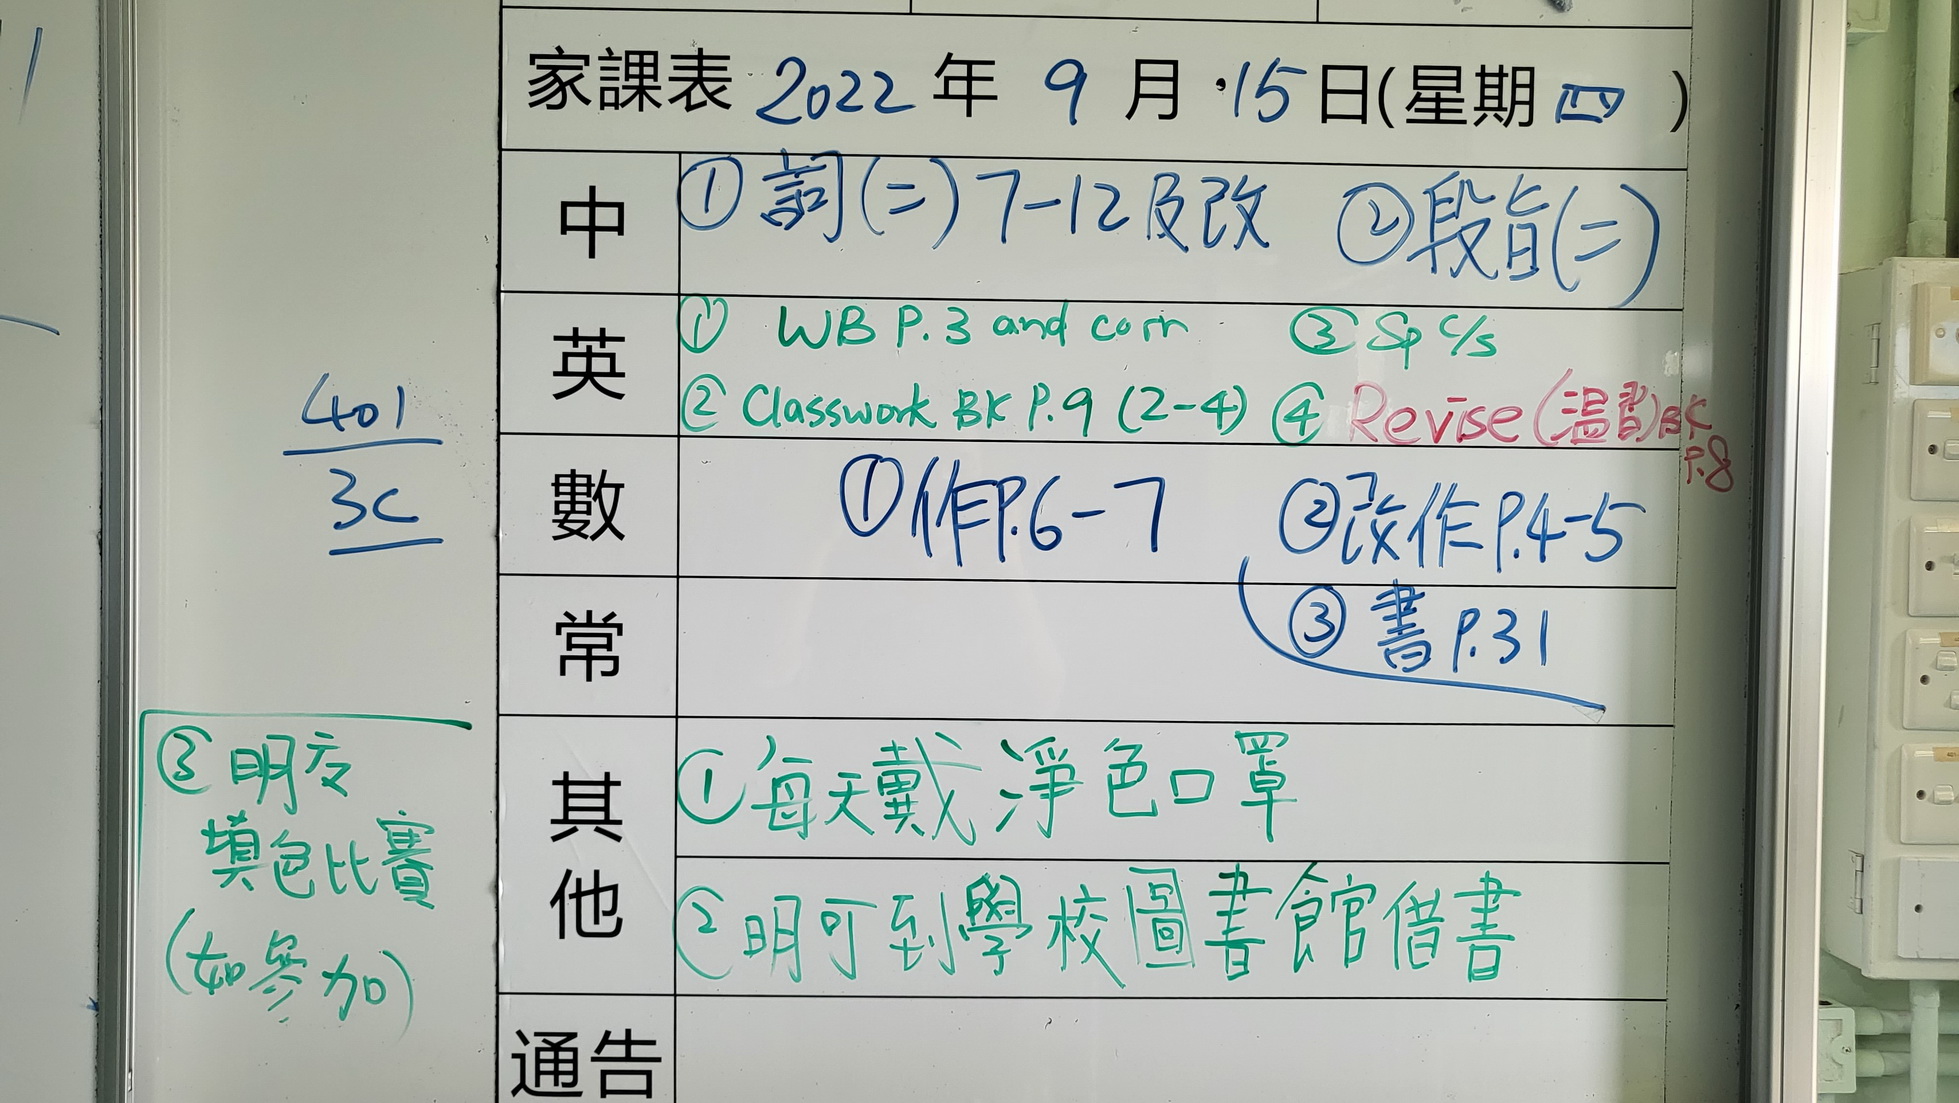 家課表 2022 年 9 月 15 日(星期 四 )
中 ①詞(二)7-12及改 ②段旨(二)
英 ① WB P.3 and corr ③ Sp c/s
② Classwork BK P.9 (2-4) ④ Revise (溫習) BK P.8
數 ①作P.6-7 ②改作P.4-5
③書P.31
常
其他 ①每天戴淨色口罩
②明可到學校圖書館借書
通告
401
3C
③明交
填色比賽
(如參加)